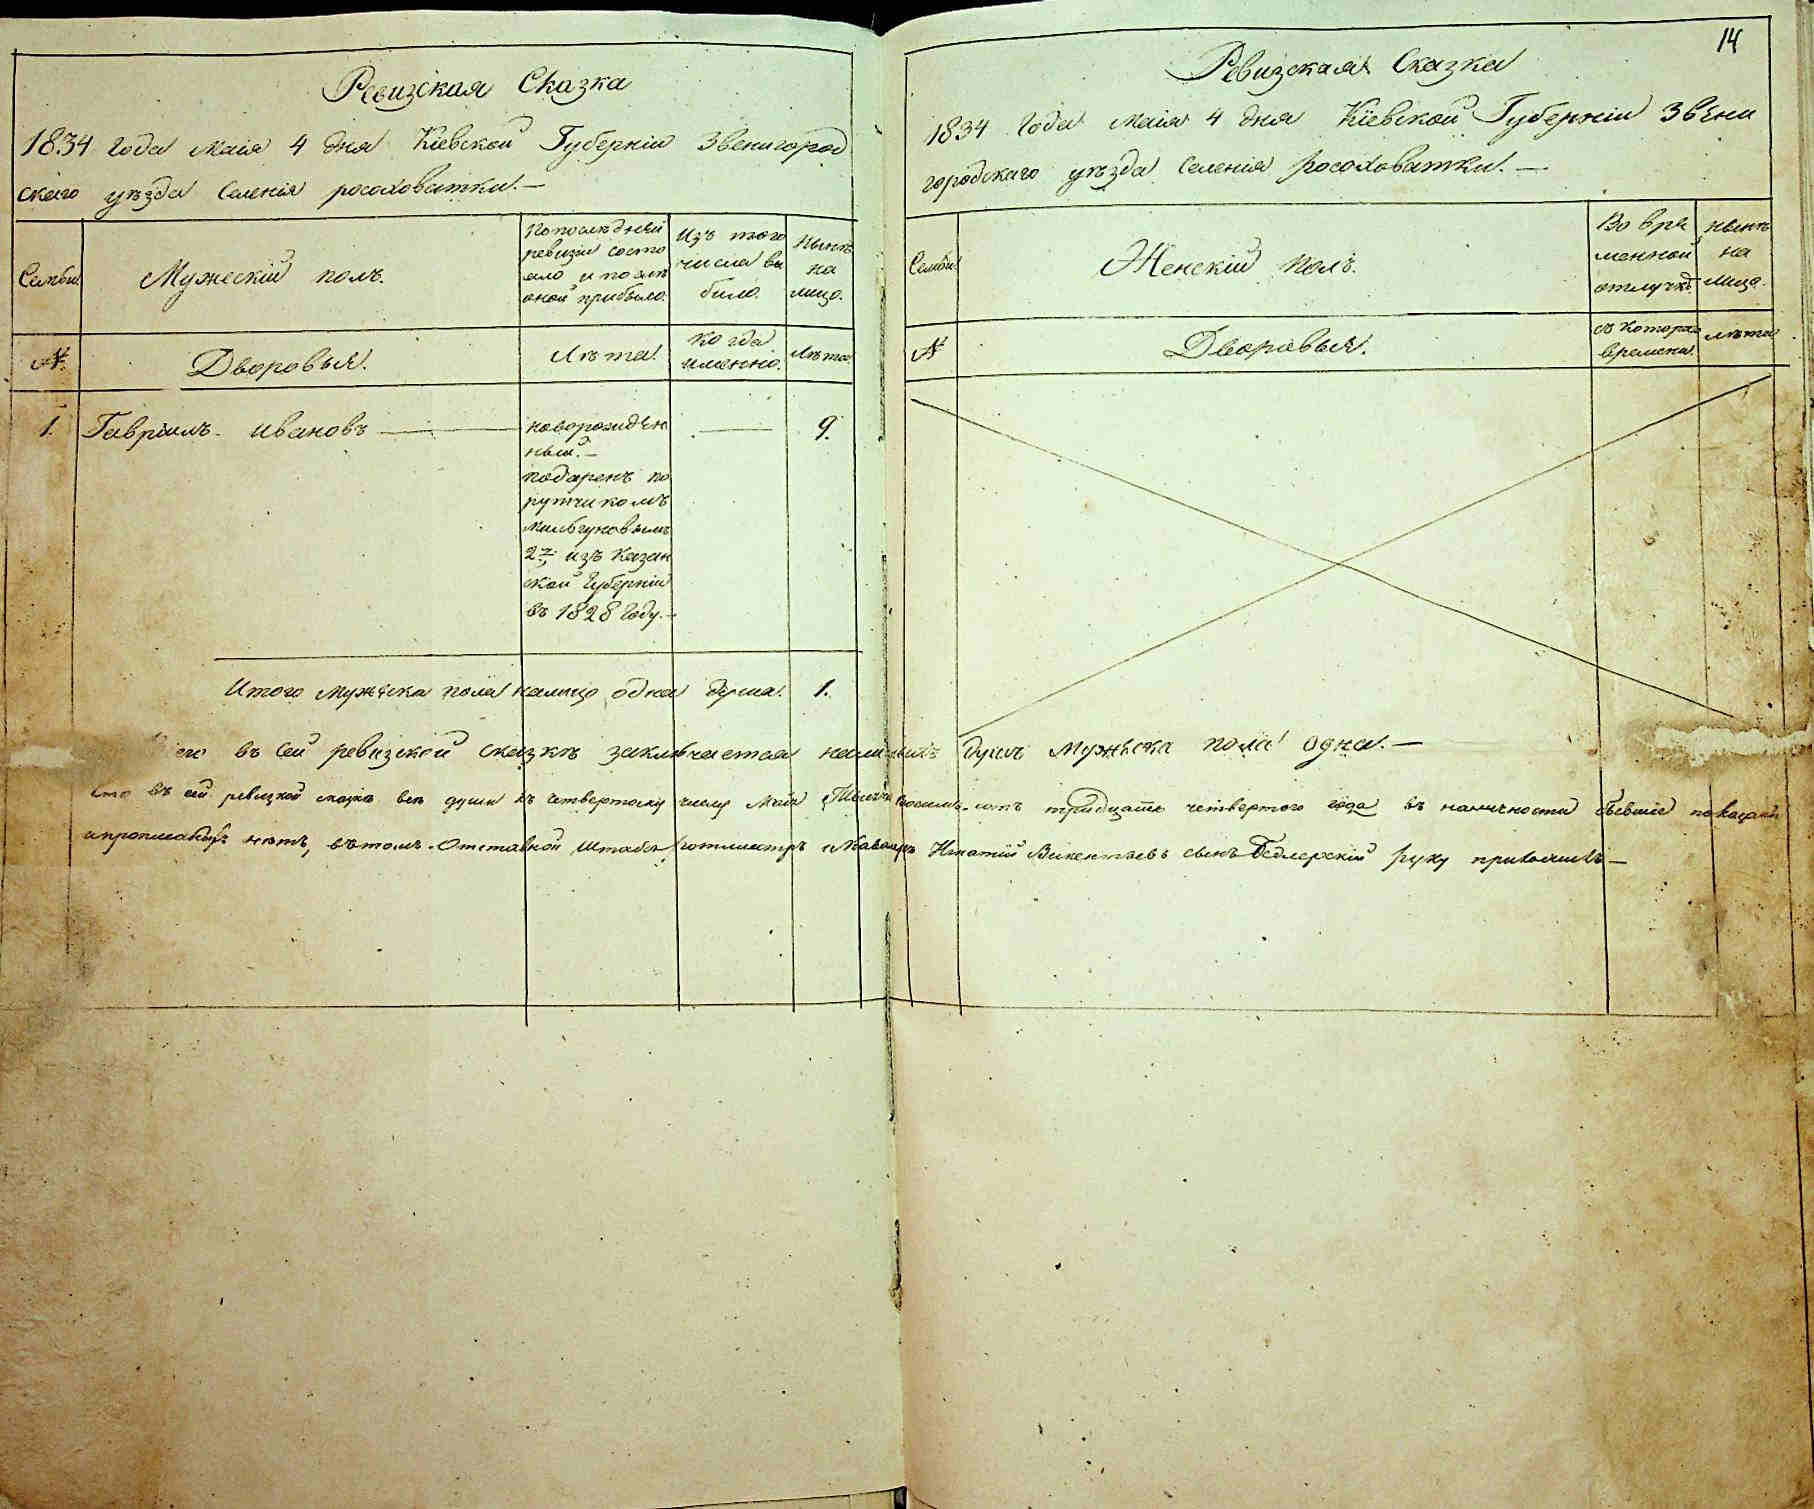 Ревизская Сказка
1834 Года маія 4 дня Кіевской Губерніи Звенигород
скаго уѣзда Селенія росоховатки. —
Семьи
Мужескій полъ.
По послѣдней
ревизіи состо
яло и послѣ
оной прибыло.
Изъ того
числа вы
было.
Нынѣ
на
лицо.
№.
Дворовыя.
Лѣта.
когда
именно.
Лѣта
1. Гавріилъ Ивановъ —
новорожден
ный. —
подаренъ по
рутчикомъ
2 изъ Казан
ской Губерніи
въ 1828 Году. —
—
9.
Итого мужеска пола налицо одна душа. 1.
14
Ревизская Сказка
1834 Года маія 4 дня Кіевской Губерніи Звени
городскаго уѣзда Селенія росоховатки. —
Семьи
Женскій полъ.
Во вре
менной
отлучкѣ
нынѣ
на
лицо.
№
Дворовыя.
съ котораго
времени.
лѣта
въ сей ревизской сказкѣ заключается наличныхъ душъ Мужеска пола одна. —
что въ сей ревизкой сказкѣ всѣ души къ четвертому числу Маія Тысяча восемь сотъ тридцать четвертого года въ наличности бывшіе показаны
и прописныхъ нѣтъ, въ томъ Отставной Штабсъ Ротмистръ и Кавалеръ Игнатій Викентьевъ сынъ руку приложилъ —